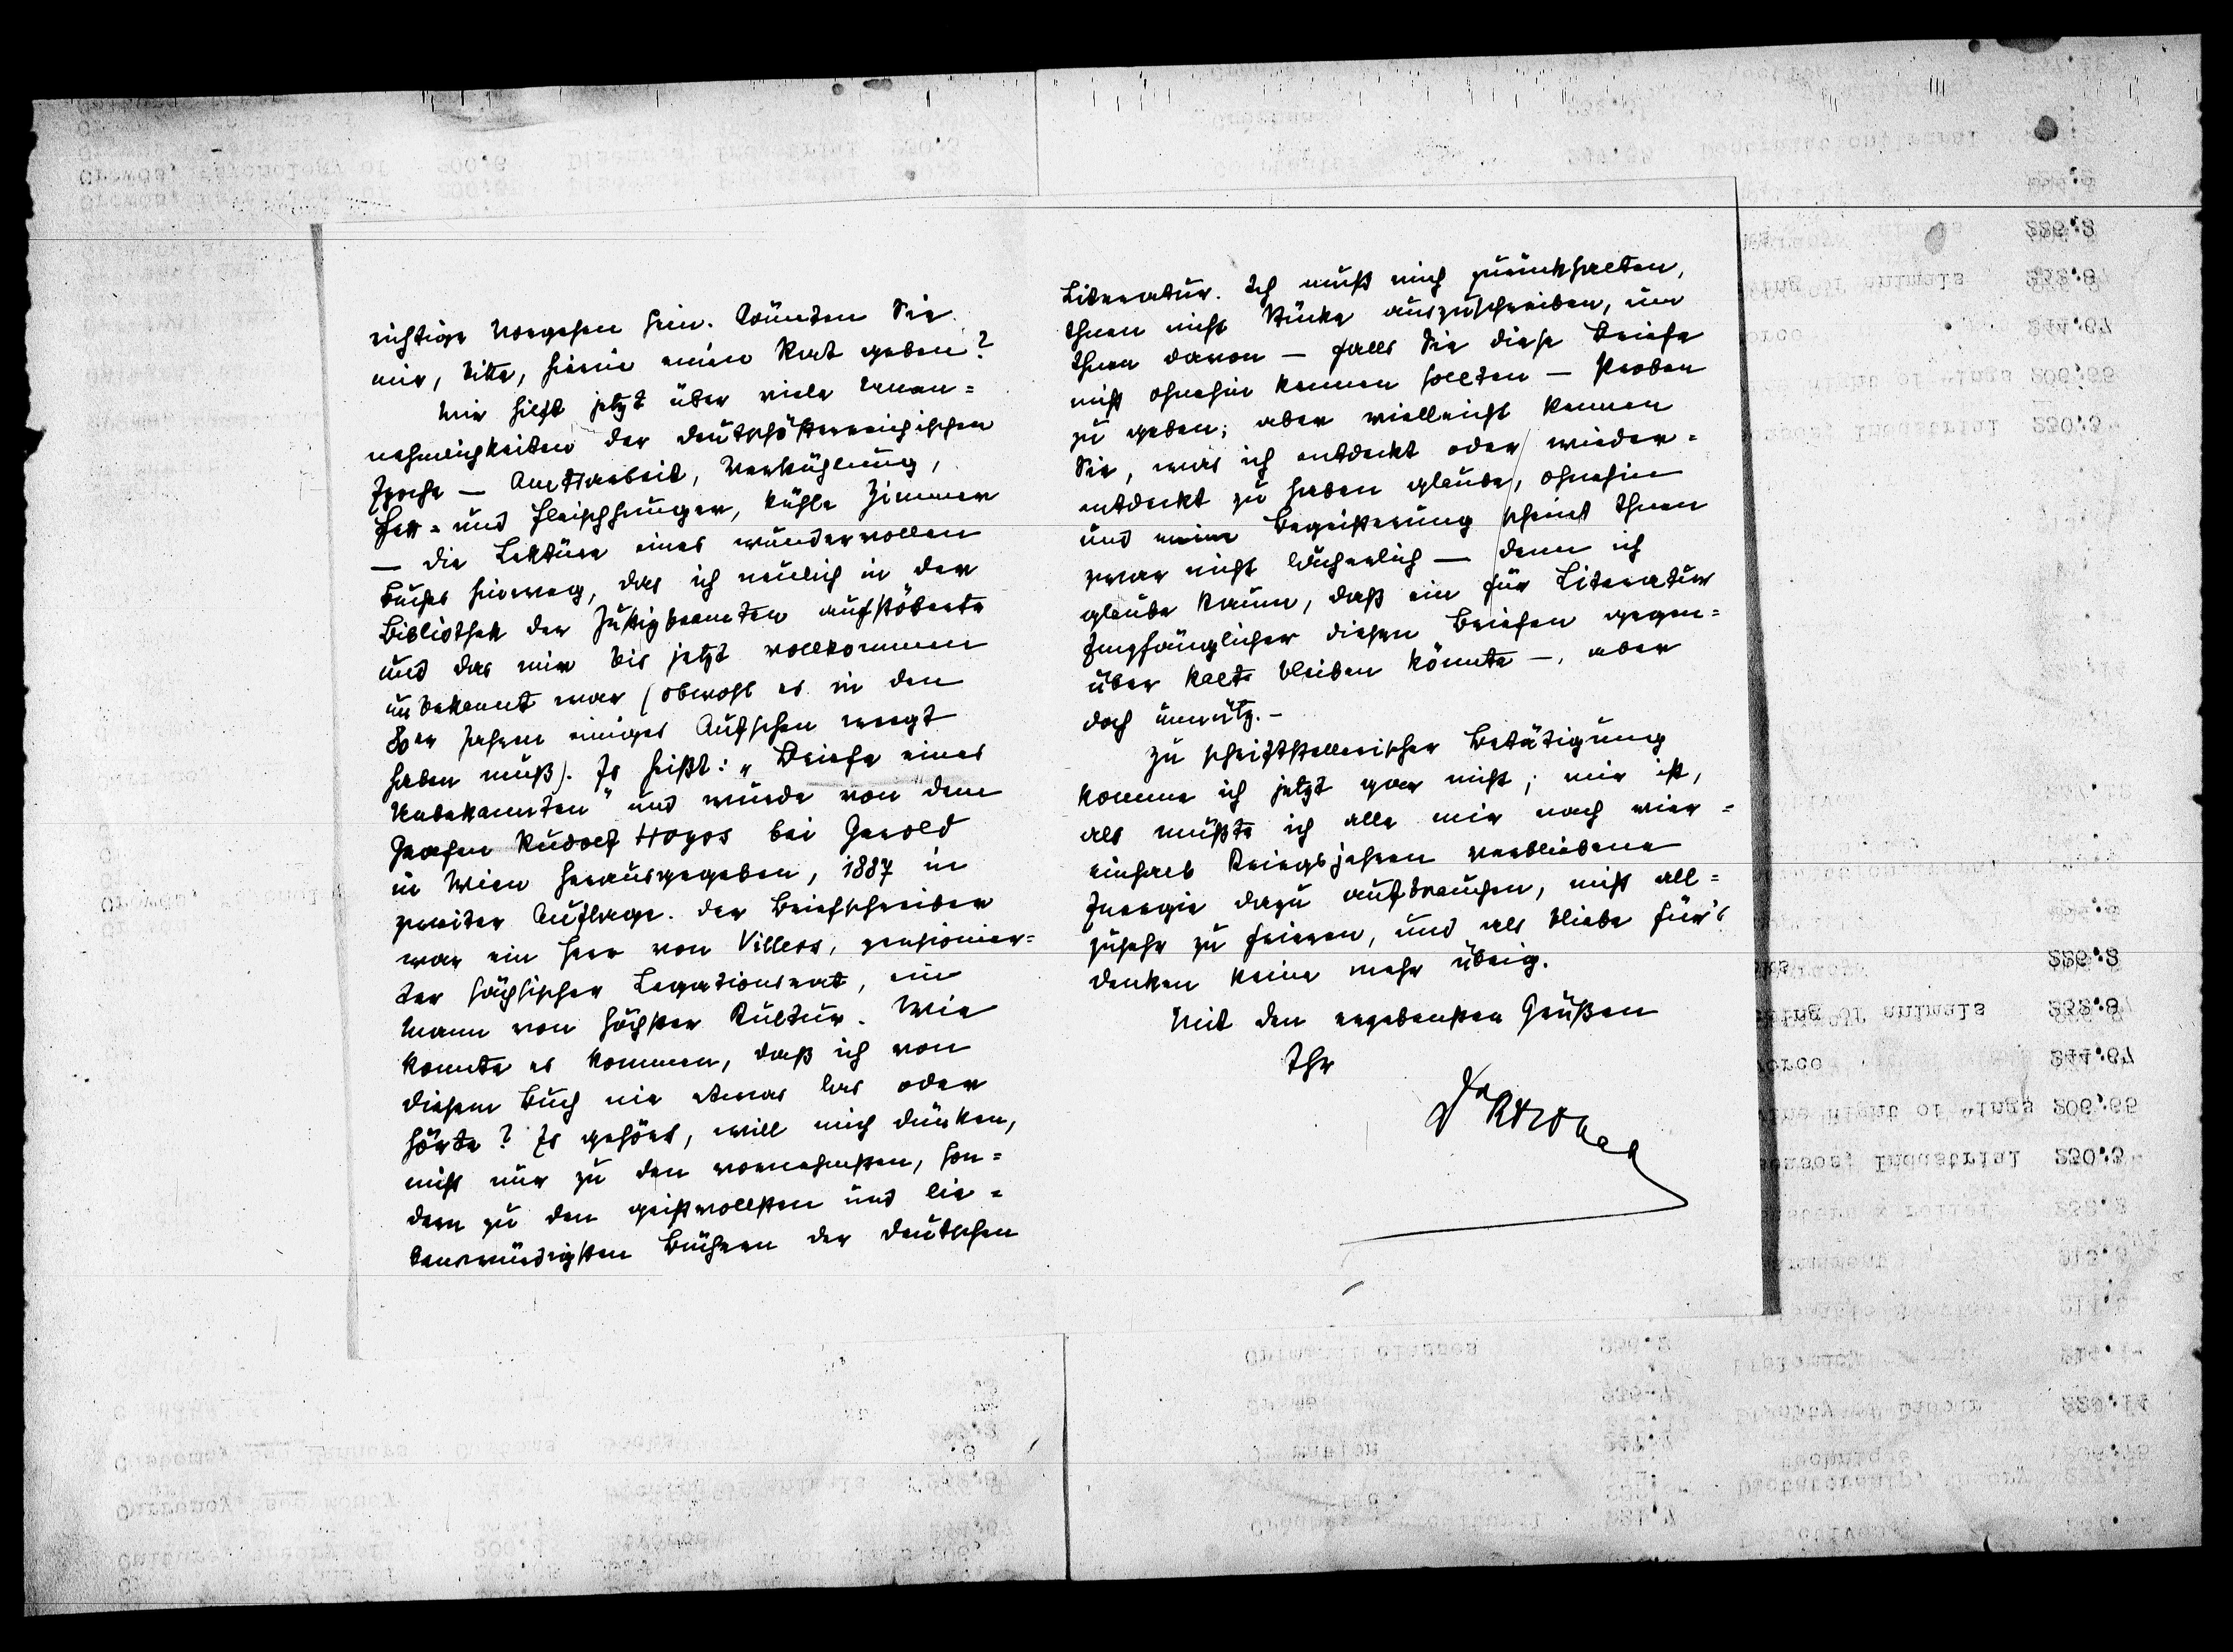 richtige Vorgehen sein. Könnten Sie
mir, bitte, hierin einen Rat geben?
Mir hilft jetzt über viele Unan=
nehmlichkeiten der deutschösterreichischen
Epoche — Amtsarbeit, Verkühlung,
Fett- und Fleischhunger, kühle Zimmer
— die Lektüre eines wundervollen
Buches hinweg, das ich neulich in der
Bibliothek der Justizbeamten aufstöberte
und das mir bis jetzt vollkommen
unbekannt war (obwohl es in den
80er Jahren einiges Aufsehen erregt
haben muß). Es heißt: „Briefe eines
Unbekannten" und wurde von dem
Grafen Rudolf Hoyos bei Gerold
in Wien herausgegeben, 1887 in
zweiter Auflage. Der Briefschreiber
war ein Herr von Villers, pensionier=
ter sächsischer Legationsrat, ein
Mann von höchster Kultur. Wie
konnte es kommen, daß ich von
diesem Buch nie etwas las oder
hörte? Es gehört, will mich dünken,
nicht nur zu den vornehmsten, son=
dern zu den geistvollsten und lie=
benswürdigsten Büchern der deutschen
Literatur. Ich muß mich zurückhalten,
Ihnen nicht Stücke auszuschreiben, um
Ihnen davon — falls Sie diese Briefe
nicht ohnehin kennen sollten — Proben
zu geben; aber vielleicht kennen
Sie, was ich entdeckt oder wieder=
entdeckt zu haben glaube, ohnehin
und meine Begeisterung scheint Ihnen
zwar nicht lächerlich — denn ich
glaube kaum, daß ein für Literatur
Empfänglicher diesen Briefen gegen=
über kalt bleiben könnte —, aber
doch unnütz. —
Zu schriftstellerischer Betätigung
komme ich jetzt gar nicht; mir ist,
als müßte ich alle mir nach vier=
einhalb Kriegsjahren verbliebene
Energie dazu aufbrauchen, nicht all=
zusehr zu frieren, und als bliebe für's
Denken keine mehr übrig.
Mit den ergebensten Grüßen
Ihr